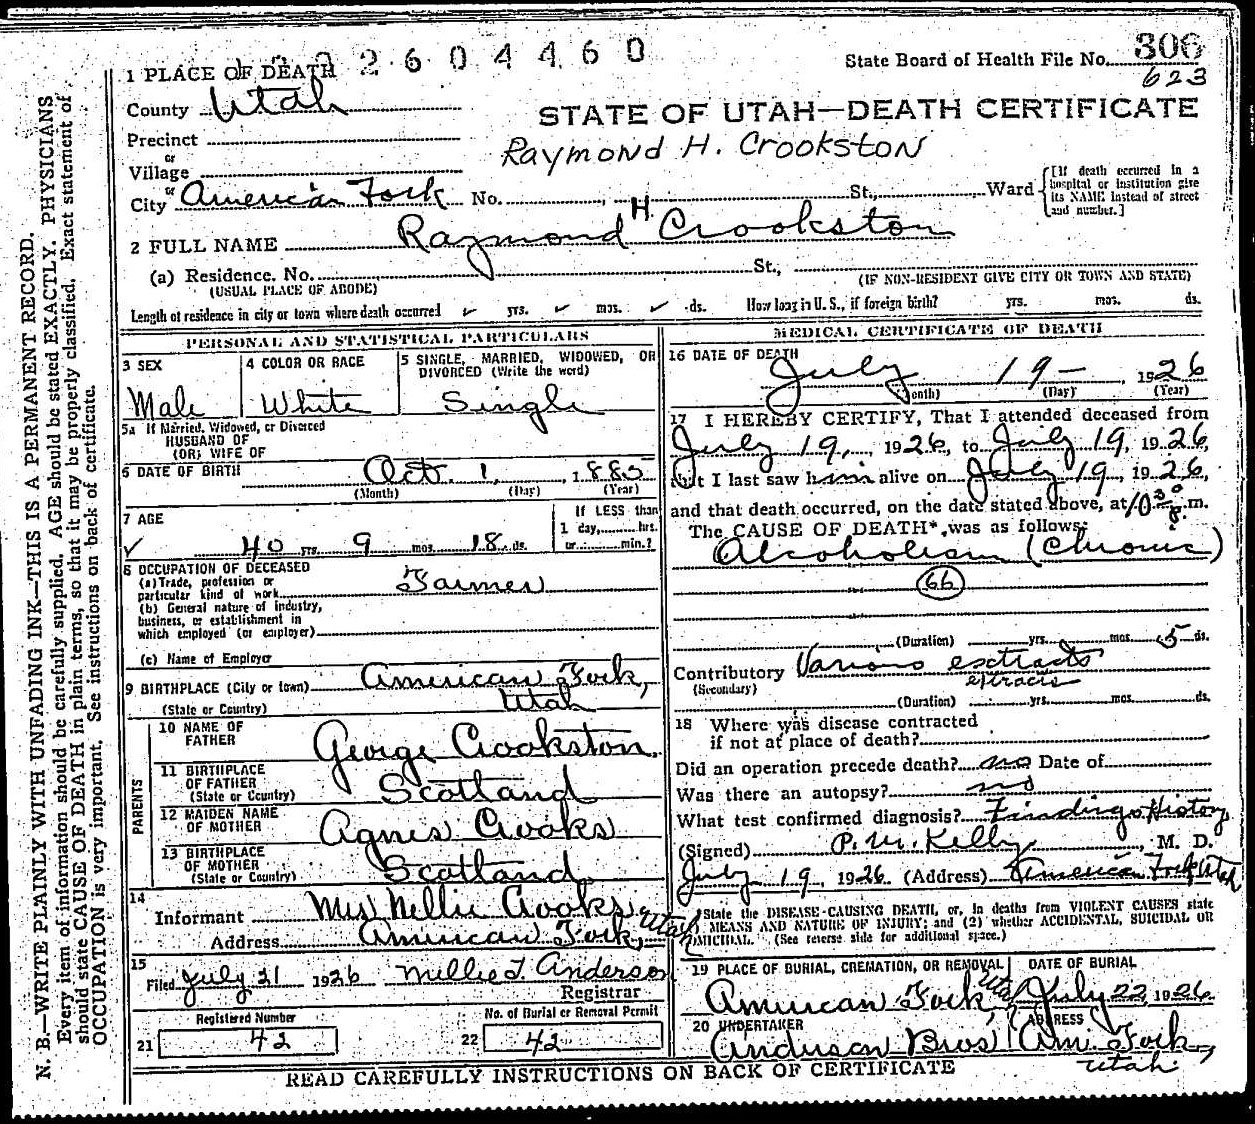 2604460
State Board of Health File No. 306
623
1 PLACE OF DEATH
County Utah
STATE OF UTAH—DEATH CERTIFICATE
Precinct
Raymond H. Crookston
or
Village
or
City American Fork No. St., Ward
[If death occurred in a hospital or institution give its NAME instead of street and number.]
2 FULL NAME Raymond H. Crookston
(a) Residence. No. St.,
(USUAL PLACE OF ABODE) (IF NON-RESIDENT GIVE CITY OR TOWN AND STATE)
Length of residence in city or town where death occurred yrs. mos. ds. How long in U. S., if foreign birth? yrs. mos. ds.
PERSONAL AND STATISTICAL PARTICULARS
3 SEX
Male
4 COLOR OR RACE
White
5 SINGLE, MARRIED, WIDOWED, OR
DIVORCED (Write the word)
Single
5a If Married, Widowed, or Divorced
HUSBAND OF
(OR) WIFE OF
6 DATE OF BIRTH Oct. 1, 1885
(Month) (Day) (Year)
7 AGE
40 yrs. 9 mos. 18 ds.
If LESS than
1 day, hrs.
or min.?
8 OCCUPATION OF DECEASED
(a) Trade, profession or
particular kind of work Farmer
(b) General nature of industry,
business, or establishment in
which employed (or employer)
(c) Name of Employer
9 BIRTHPLACE (City or town) American Fork,
(State or Country) Utah
PARENTS
10 NAME OF
FATHER George Crookston.
11 BIRTHPLACE
OF FATHER
(State or Country) Scotland
12 MAIDEN NAME
OF MOTHER Agnes Crooks
13 BIRTHPLACE
OF MOTHER
(State or Country) Scotland
14
Informant Mrs Nellie Crooks
Address American Fork, Utah
15
Filed July 21 1926 Millie T. Anderson
Registrar
Registered Number
21 42
No. of Burial or Removal Permit
22 42
MEDICAL CERTIFICATE OF DEATH
16 DATE OF DEATH
July 19 - , 1926
(Month) (Day) (Year)
17 I HEREBY CERTIFY, That I attended deceased from
July 19, 1926, to July 19, 1926,
that I last saw him alive on July 19, 1926,
and that death occurred, on the date stated above, at 10 30 m.
The CAUSE OF DEATH*, was as follows:
Alcoholism (Chronic)
66
(Duration) yrs. mos. 5 ds.
Contributory Various extracts
(Secondary) extracts
(Duration) yrs. mos. ds.
18 Where was disease contracted
if not at place of death?
Did an operation precede death? no Date of
Was there an autopsy? no
What test confirmed diagnosis? Findings, History
(Signed) P. M. Kelly, M. D.
July 19, 1926. (Address) American Fork Utah
State the DISEASE CAUSING DEATH, or, in deaths from VIOLENT CAUSES state
MEANS AND NATURE OF INJURY; and (2) whether ACCIDENTAL, SUICIDAL OR
HOMICIDAL. (See reverse side for additional space.)
19 PLACE OF BURIAL, CREMATION, OR REMOVAL
American Fork, Utah
DATE OF BURIAL
July 22, 1926.
20 UNDERTAKER
Anderson Bros
ADDRESS
Am. Fork,
Utah.
READ CAREFULLY INSTRUCTIONS ON BACK OF CERTIFICATE
N. B.—WRITE PLAINLY WITH UNFADING INK—THIS IS A PERMANENT RECORD.
Every item of information should be carefully supplied. AGE should be stated EXACTLY. PHYSICIANS
should state CAUSE OF DEATH in plain terms, so that it may be properly classified. Exact statement of
OCCUPATION is very important. See instructions on back of certificate.